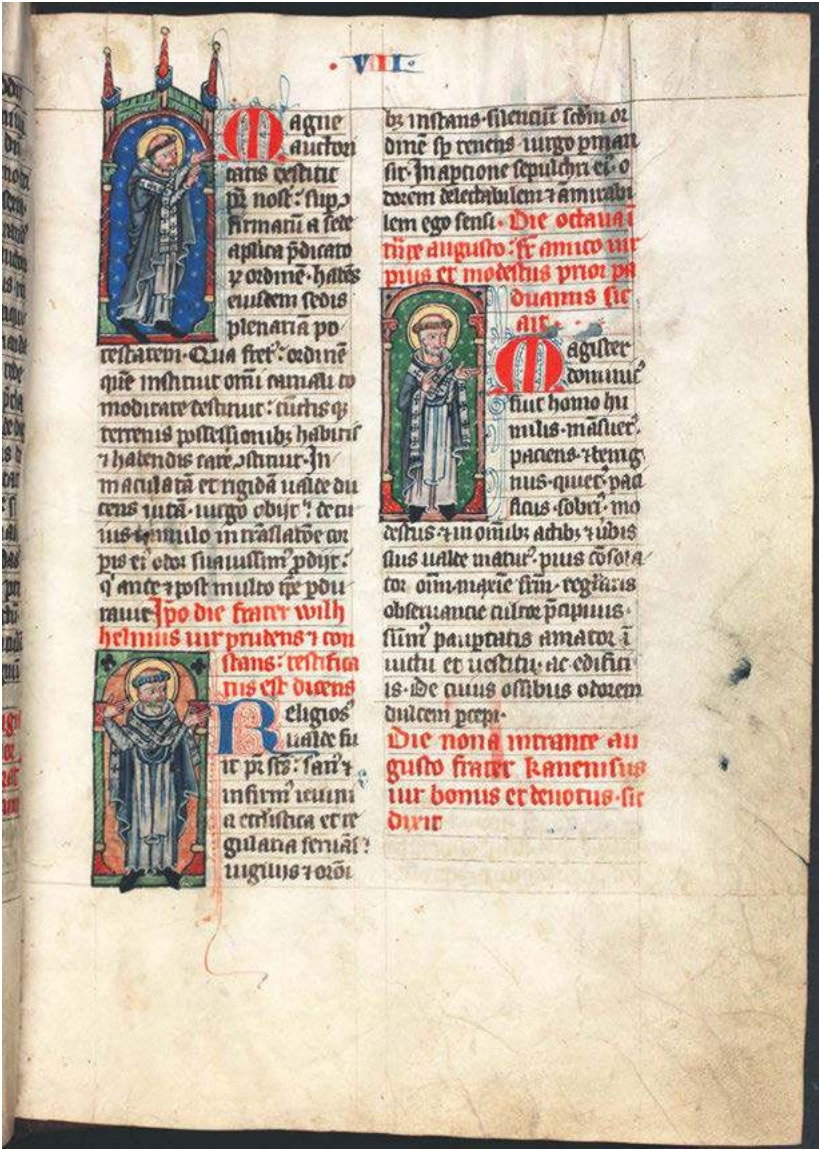 VIII
Magne
auctori
tatis extitit
pr̄ nost᷒: sup
firmatū a sede
aplica p̄dicato
ꝝ ordinē· habēs
eiusdem sedis
plenariā po
testatem· Qua fret᷒: ordinē
quē instituit omī carnali co
moditate destituit: cūctis qꝫ
terrenis possessionibꝫ habitis
⁊ habendis carē ꝯstituit· In
maculatā et rigidā ualde du
cens uitā· uirgo obijt: de cu
ius tumulo in trāslatōe cor
pis ei᷒ odor suauissim᷒ ꝓdijt:
q ante ⁊ post multo tp̄e ꝑdu
rauit· Ip̄o die frater wilh
helmus uir prudens ⁊ con
stans: testifica
tus est dicens
Religios᷒
ualde fu
it pr̄ sc̄s: sani ⁊
infirm᷒ ieiuni
a eccl̄istica et re
gularia seruās:
uigilijs ⁊ orōi
bꝫ instans· silenciū scd̄m or
dinē sp̄ tenens uirgo ꝑman
sit· In aptione sepulchri ei᷒ o
dorem delectabilem ⁊ amirabi
lem ego sensi· Die octaua ī
trāte augusto: fr̄ amico uir
pius et modestus prior pa
duanus sic
ait·
Magister
dominic᷒
fuit homo hu
milis· māsuet᷒·
paciens· ⁊ benig
nus· quiet᷒· paci
ficus· sobri᷒· mo
destus· ⁊ in omībꝫ actibꝫ ⁊ ūbis
suis ualde matur᷒· pius cōsola
tor om̄· maxie frm̄· reglaris
obseruancie cultor p̄cipuus·
sūm᷒ pauptatis amator ī
uictu et uestitu· ac edifici
is· De cuius ossibus odorem
dulcem ꝑcepi·
Die nona intrante au
gusto frater
uir bonus et deuotus· sic
dixit